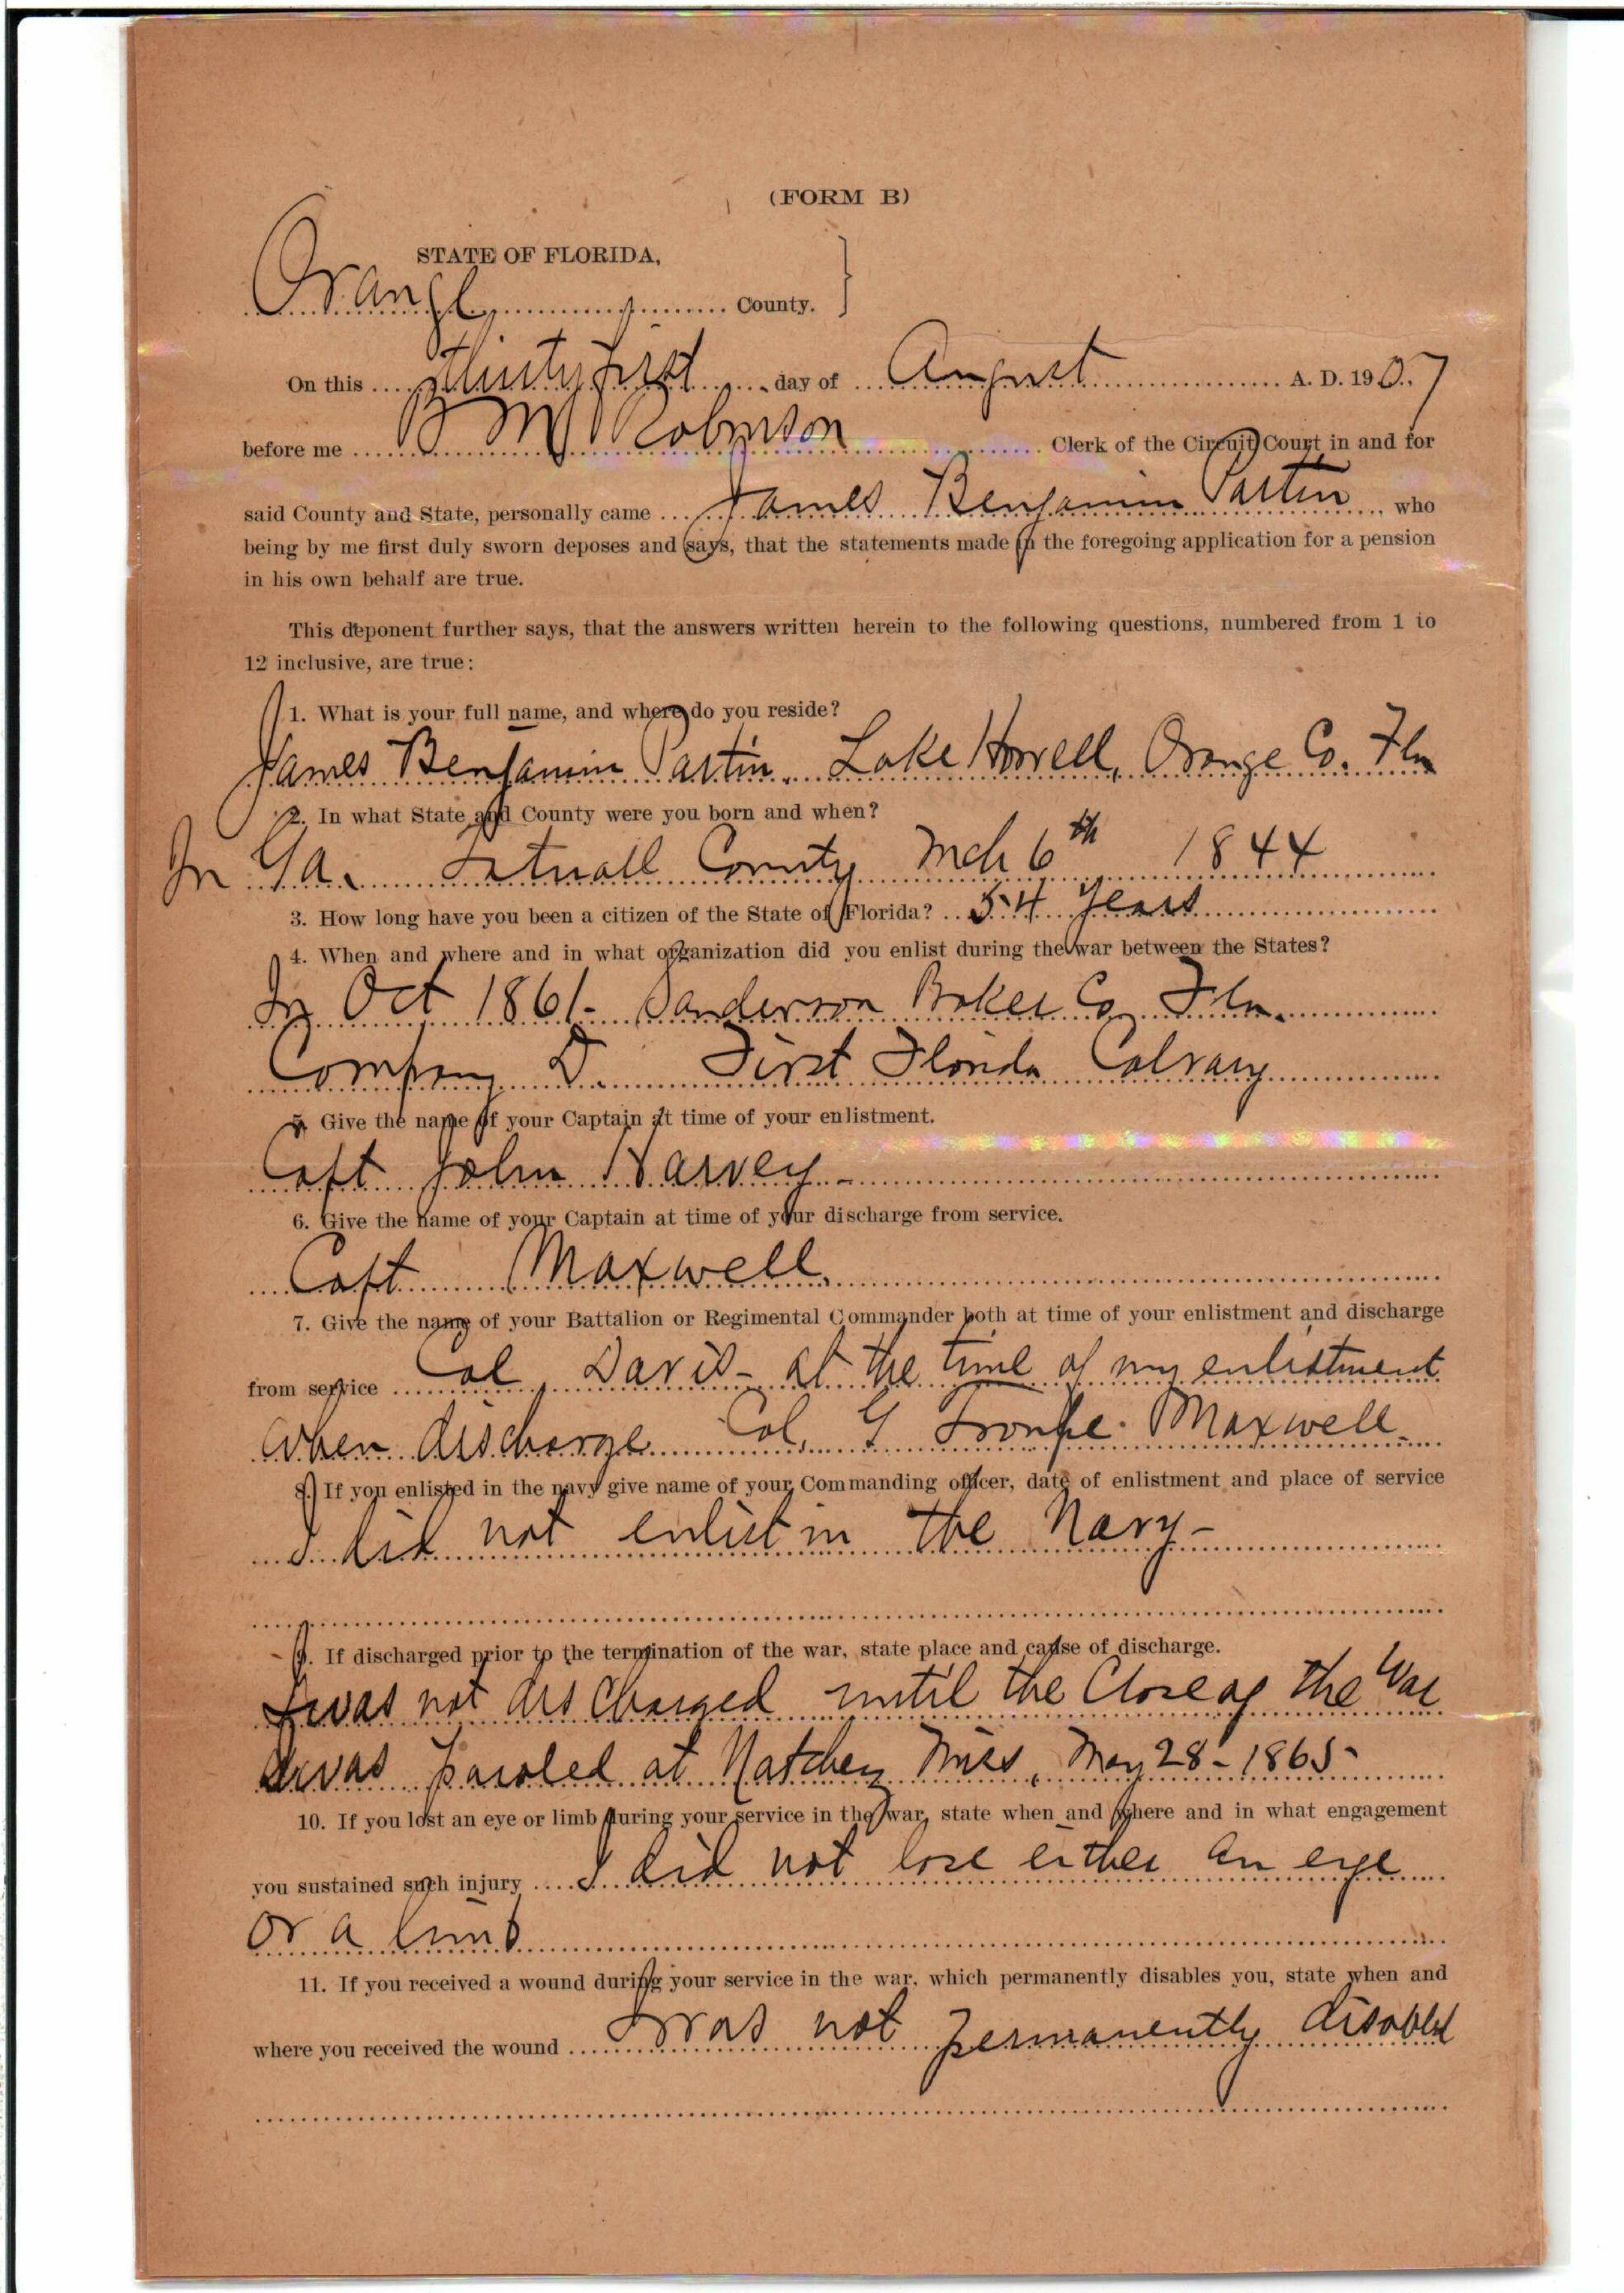 (FORM B)
STATE OF FLORIDA,
Orange County.
On this thirty first day of August A. D. 1907
before me B M Robinson Clerk of the Circuit Court in and for
said County and State, personally came James Benjamin Partin who
being by me first duly sworn deposes and says, that the statements made in the foregoing application for a pension
in his own behalf are true.
This deponent further says, that the answers written herein to the following questions, numbered from 1 to
12 inclusive, are true:
1. What is your full name, and where do you reside?
James Benjamin Partin. Lake Howell, Orange Co. Fla
2. In what State and County were you born and when?
In Ga. Tatnall County Mch 6th 1844
3. How long have you been a citizen of the State of Florida? 54 years
4. When and where and in what organization did you enlist during the war between the States?
In Oct 1861- Sanderson Baker Co Fla.
Company D. First Florida Calvary
5. Give the name of your Captain at time of your enlistment.
Capt John Harvey -
6. Give the name of your Captain at time of your discharge from service.
Capt Maxwell.
7. Give the name of your Battalion or Regimental Commander both at time of your enlistment and discharge
from service Col Davis - at the time of my enlistment
when discharge Col. G Troupe Maxwell.
8. If you enlisted in the navy give name of your Commanding officer, date of enlistment and place of service
I did not enlist in the Navy -
9. If discharged prior to the termination of the war, state place and cause of discharge.
I was not discharged until the Close of the War
I was paroled at Natchez Miss, May 28 - 1865 -
10. If you lost an eye or limb during your service in the war, state when and where and in what engagement
you sustained such injury I did not lose either an eye
or a limb
11. If you received a wound during your service in the war, which permanently disables you, state when and
where you received the wound I was not permanently disabled